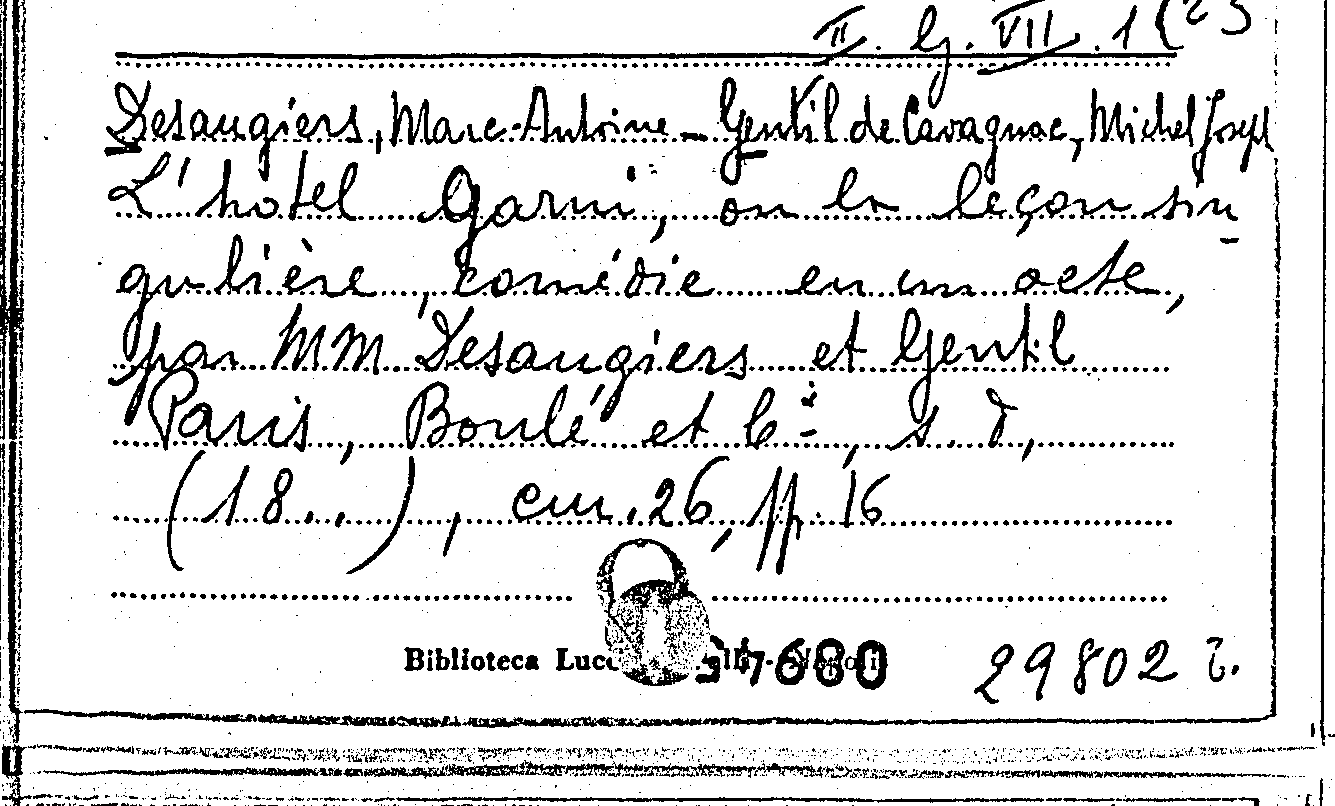 II. G. VII. 1 (23
Desaugiers, Marc-Antoine - Gentil de Cavagnac, Michel Joseph
L'hotel Garni, ou la leçon sin
gulière, comédie en un acte,
par MM Desaugiers et Gentil
Paris, Boulé et C.ie, s. d,
(18..), cm.26, pp. 16
Biblioteca
7680
29802